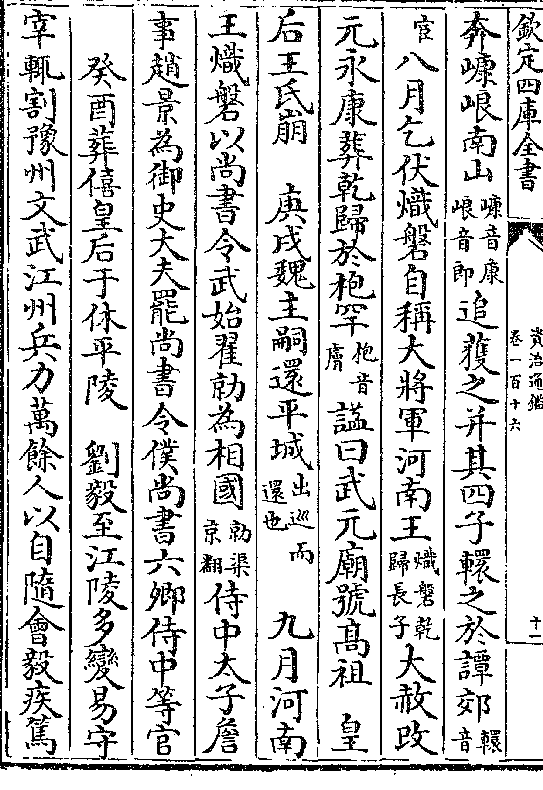 欽定四庫全書
資治通鑑
卷一百十六
十一
奔嵻㟍南山嵻音康㟍音郎追獲之并其四子轘之於譚郊轘音
宦八月乞伏熾磐自稱大將軍河南王熾磐乾歸長子大赦改
元永康葬乾歸於枹罕枹音膚諡曰武元廟號高祖 皇
后王氏崩 庚戌魏主嗣還平城出巡而還也 九月河南
王熾磐以尚書令武始翟勍為相國勍渠京翻侍中太子詹
事趙景為御史大夫罷尚書令僕尚書六卿侍中等官
癸酉葬僖皇后于休平陵 劉毅至江陵多變易守
宰輒割豫州文武江州兵力萬餘人以自隨會毅疾篤